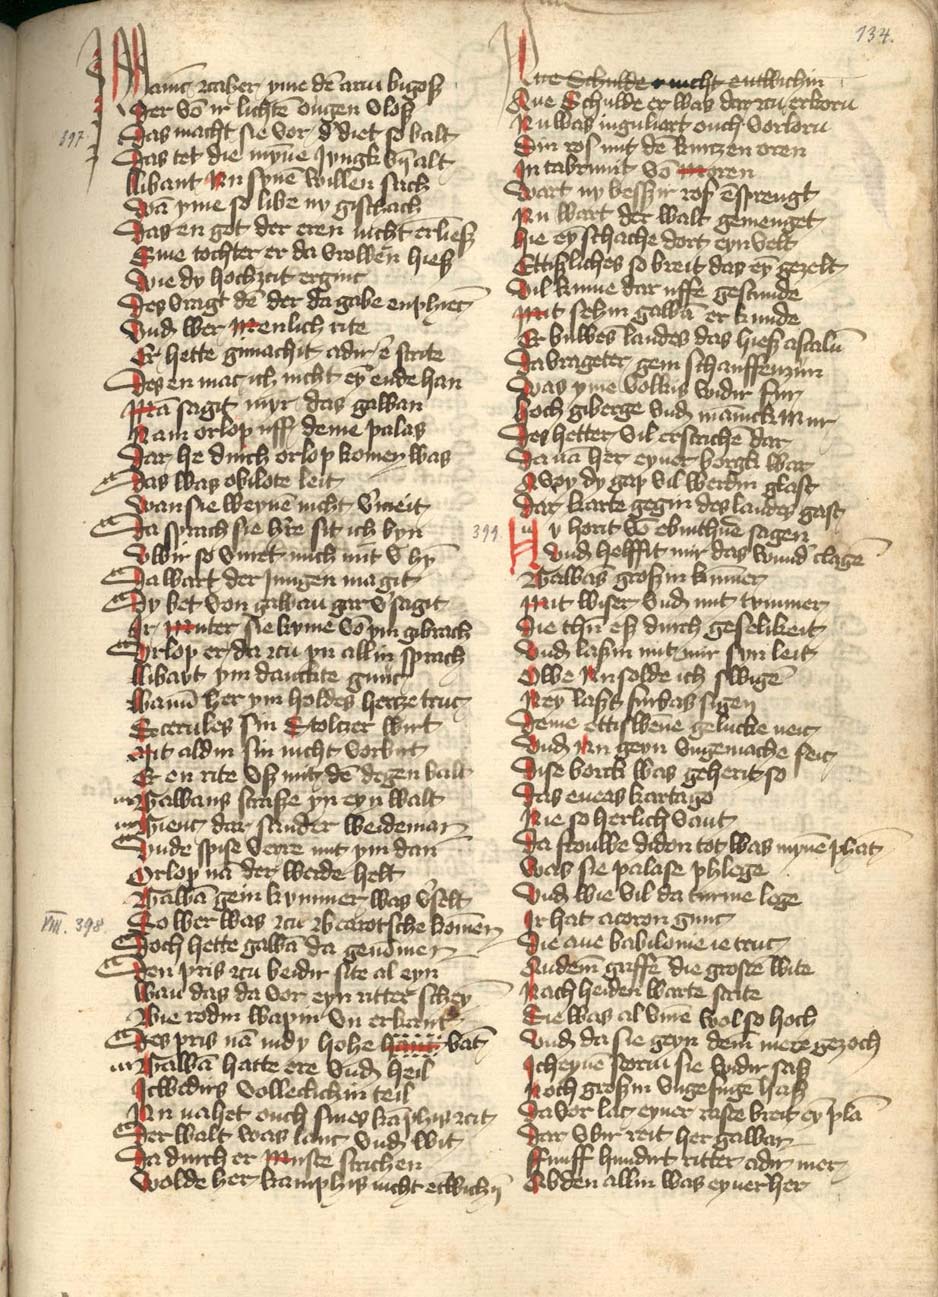 134.
Manic zaher yme dē abin bigoſz
Der vō ir lichtē ougen vloſz
397
Das macht ſie vor d diet ſo balt
Das tet die mȳne Jungk vn alt
libant Nn ſynē willen ſach
Wā yme ſo libe ny giſchach
Das en got der eren nicht erlieſz
Sine tochter er da vrowen hieſz
Wie dy hochzcit erginc
Des vragt dē der da gabe enphienc
Vnd wer Menlich rite
Er hette gimachit adir ē ſtrite
Des en mac ich nicht eȳ ende han
Mā ſagit myr das gawan
Nam orlop vff deme palas
Dar he durch orlop komen was
Das was obilote leit
wan ſie weynē nicht vmeit
Da ſprach ſie h're ſit ich byn
Vwir ſo vuret mich mit v hȳ
Da wart der Jungen magit
Dy bet von gawan gar v'ſagit
Ir Muter ſie kyme vō ym gibrach
Orlop er da zcu yn allin ſprach
libayt ym danckte gunc
Wanū her ym holdes hertze truc
Scerules ſin Stoltzer wirt
Mit aldin ſin nicht vorbirt
Er en rite vſz mit dē degen balt
Gawans ſtraſze yn eyn walt
Gienc dar ſander weideman
Vnde ſpiſe verre mit ym dan
Orlop nā der werde helt
Gawā gein kvmmer was v'ſelt
VIII. 398
So wer was zcu bearotſche komen
Doch hette gawā da genomen
Den pris zcu beidir ſite al eyn
Wan das da vor eyn ritter ſchey
Bie rodin wapin vn erkant
Des pris nā in dy hohe bant
Gawā hatte ere vnd heil
Itwedirs volleclichin teil
Nn nahet ouch ſines kāphis zcit
Der walt was lanc vnd wit
Da durch er Muſte ſtrichen
Wolde her kamphis nicht etwichȳ
Ane Schulde nicht entwichin
Ane Schulde er was dar zcu erkorn
Nn was inguliart ouch vorlorn
Ein ros mit dē kurtzen oren
In tabrunit vō Moren
wart ny beſſir ros ē ſprengt
Nn wart der walt gemenget
hie eyſchache dort eyn velt
Ettiſliches ſo breit das eȳ gezelt
Vil kume dar uffe geſtunde
Mit ſehin gawā er kunde
Er buwes landes das hieſz aſcalū
Da vrageter gein ſchanffenzun
Was yme volkis widir fur
hoch giberge vnd mānick Mur
Des hetter vil erſtrichē dar
Da na her eyner borgk war
Avoy dy gap vil werdin glaſt
Dar karte gegin des landes gaſt
399
Nu horit vō ebinthue ſagen
Vnd helffit mir das wund' clagē
Gawas groſzin kum̄er
Mit wiſer vnd mit tummer
Die thū eſz durch geſelikeit
Vnd laſin mit mir ſyn leit
Owe Nn ſolde ich ſwigē
Ney laſzt furbas ſigen
Deme ettiſwēne gelucke neic
Vnd Nn geyn vngemache ſeic
Diſe borck was geherit ſo
Das eneas kartago
Nie ſo herlich vant
Da frouwe didon tot was mȳne phāt
Was ſie palaſe phlege
Vnd wie vil da turme lege
Ir hat acraton gunc
Die ane babilonie ie truc
Andem griffē die groſte wite
Nach heiden worte ſtrite
Sie was al vme wol ſo hoch
Vnd da ſie geyn dem mere gezoch
Icheynē ſtorm ſie widir ſaſz
Noch groſzin vngefuge haſz
Da vor lac eyner raſte breit eȳ plā
Dar vbir reit her gawan
Funff hundirt ritter adir mer
Ob den allin was eyner her